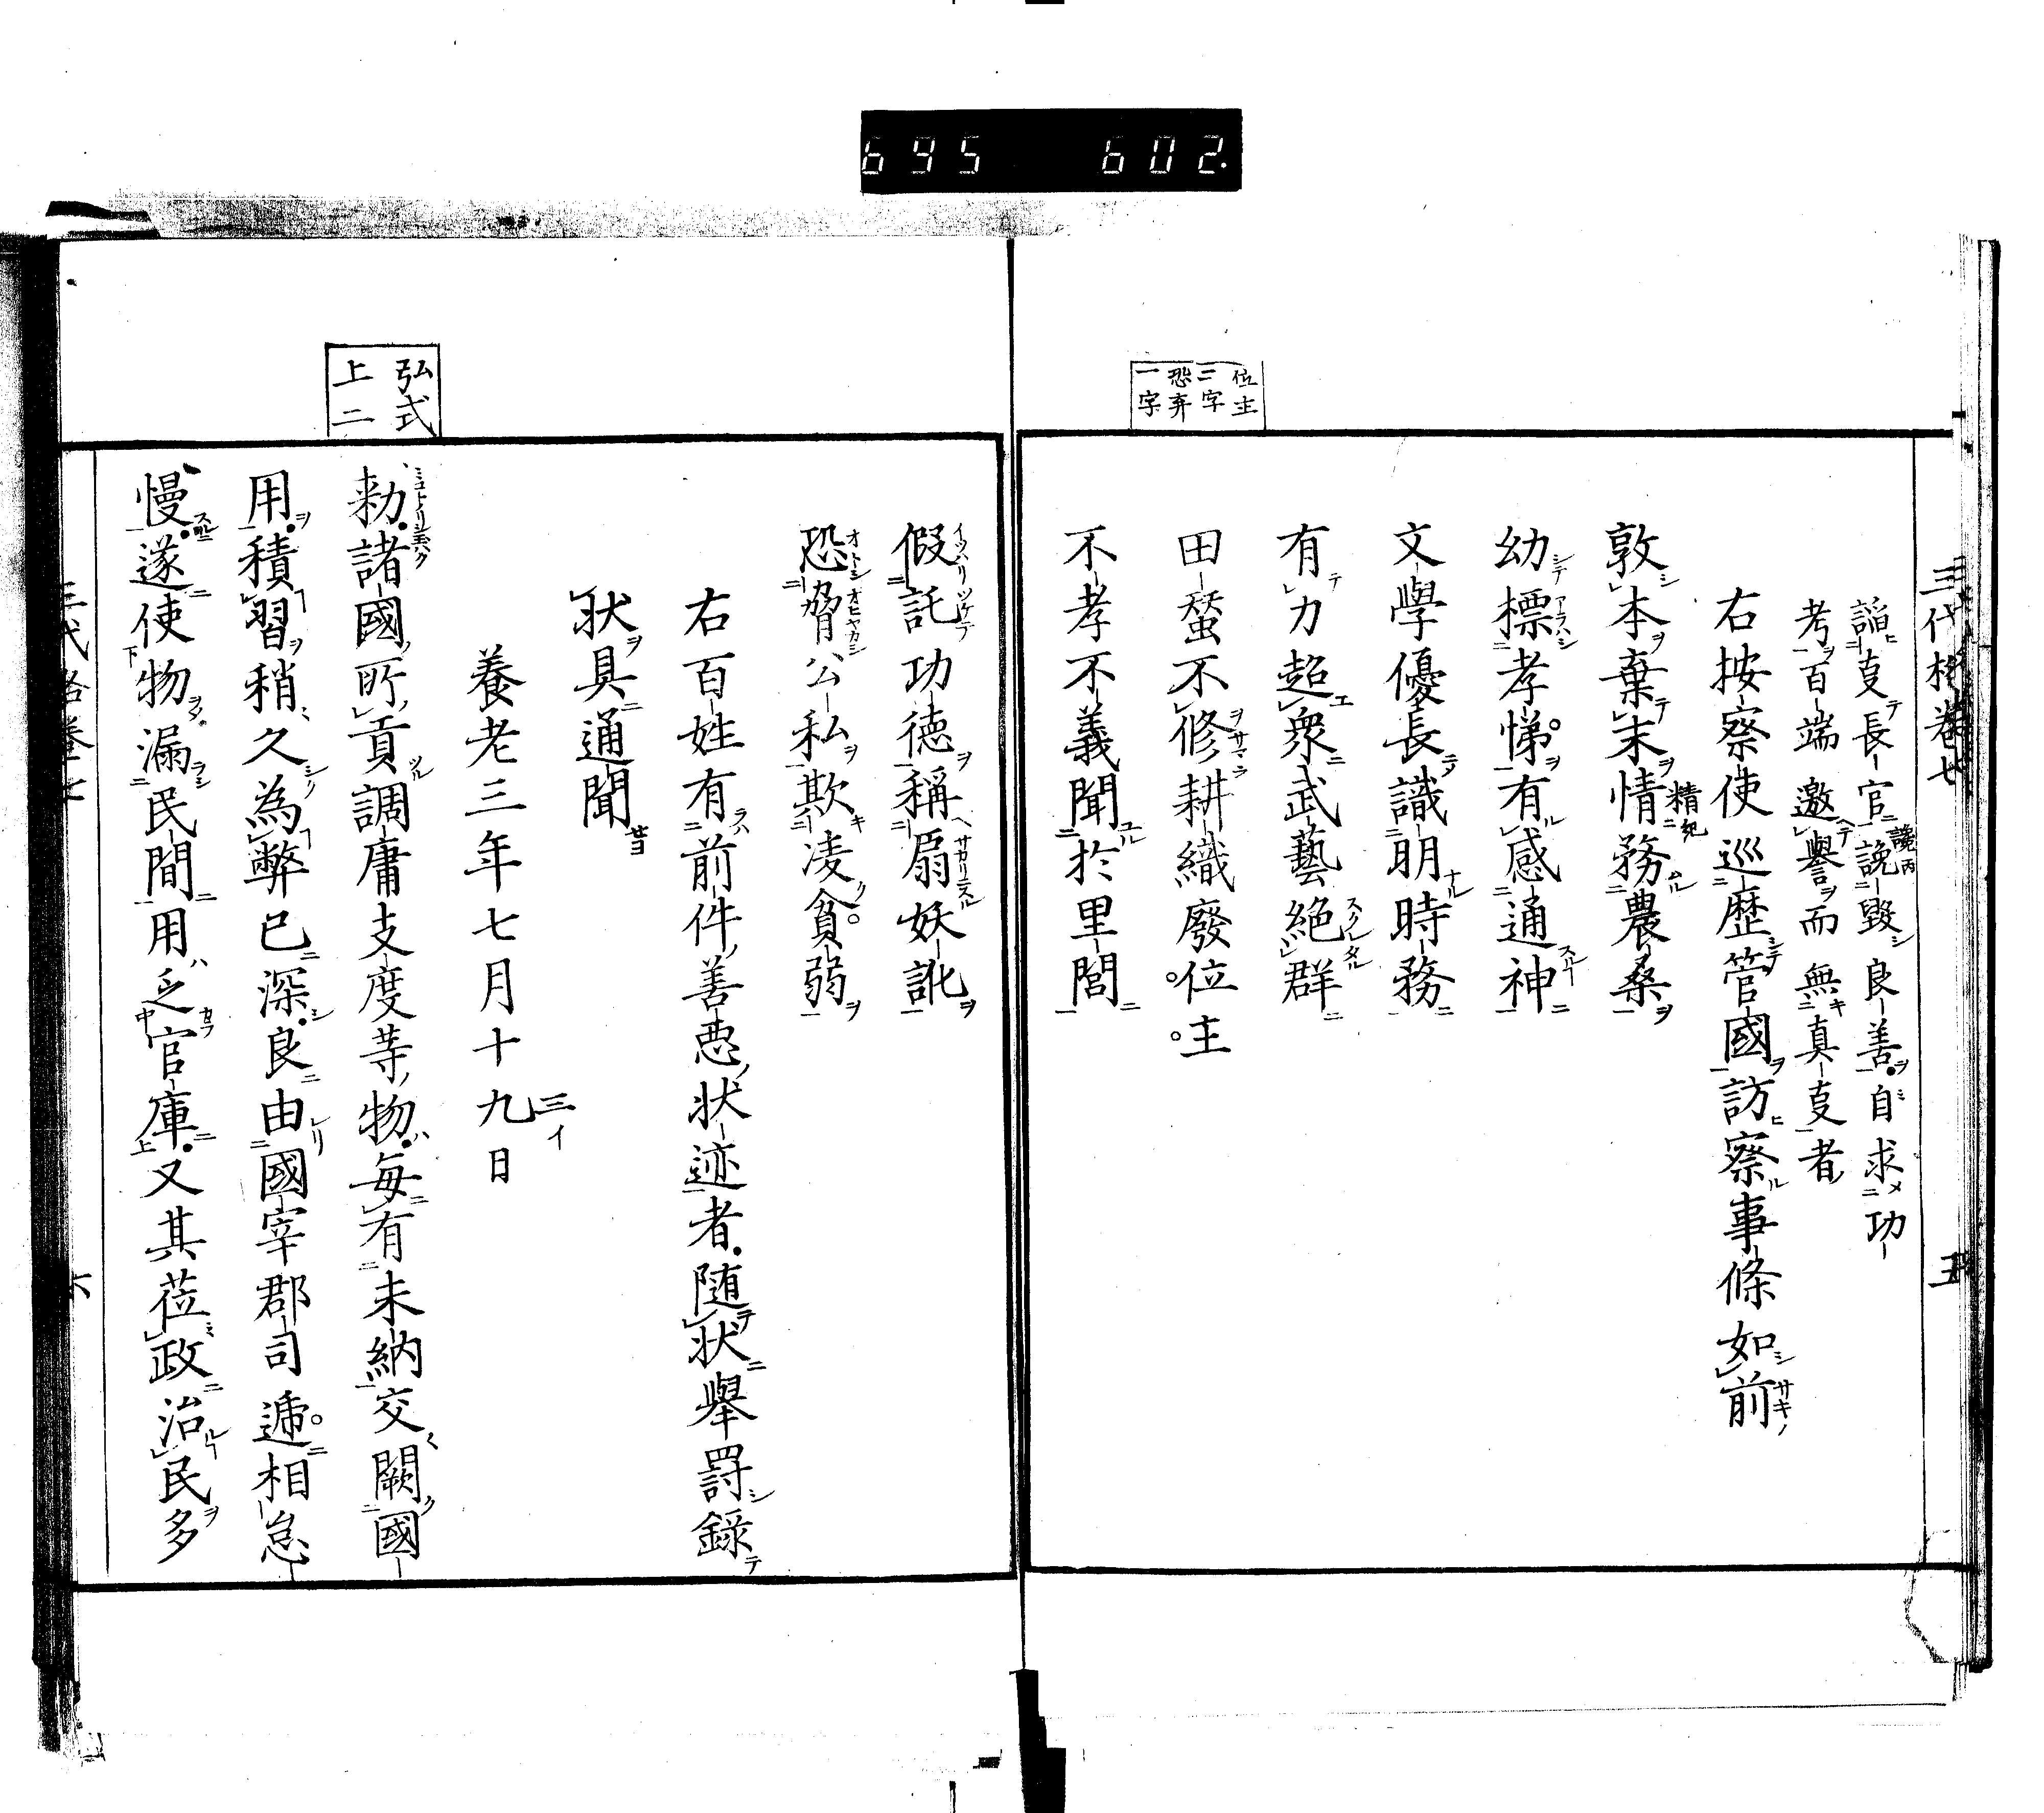 695 602
三代格卷七
五
位主
二字
恐弃
一字
諂叓長官讒毀良善自求功
考百端邀譽而無真叓者
右按察使巡歴管國訪察事條如前
敦本棄末情務農桑
幼標孝悌有感通神
文學優長識明時務
有力超衆武藝絕群
田蚕不修耕織廢位主
不孝不義聞於里閭
假託功徳稱扇妖訛
恐脅公私欺凌貧弱
右百姓有前件善悪狀迹者随狀舉罸錄
狀具通聞
養老三年七月十九日
三イ
弘式
上二
勅諸國所貢調庸支度等物每有未納交闕國
用積習稍久為弊已深良由國宰郡司遞相怠
慢遂使物漏民間用乏官庫又其莅政治民多
三代格卷七
六